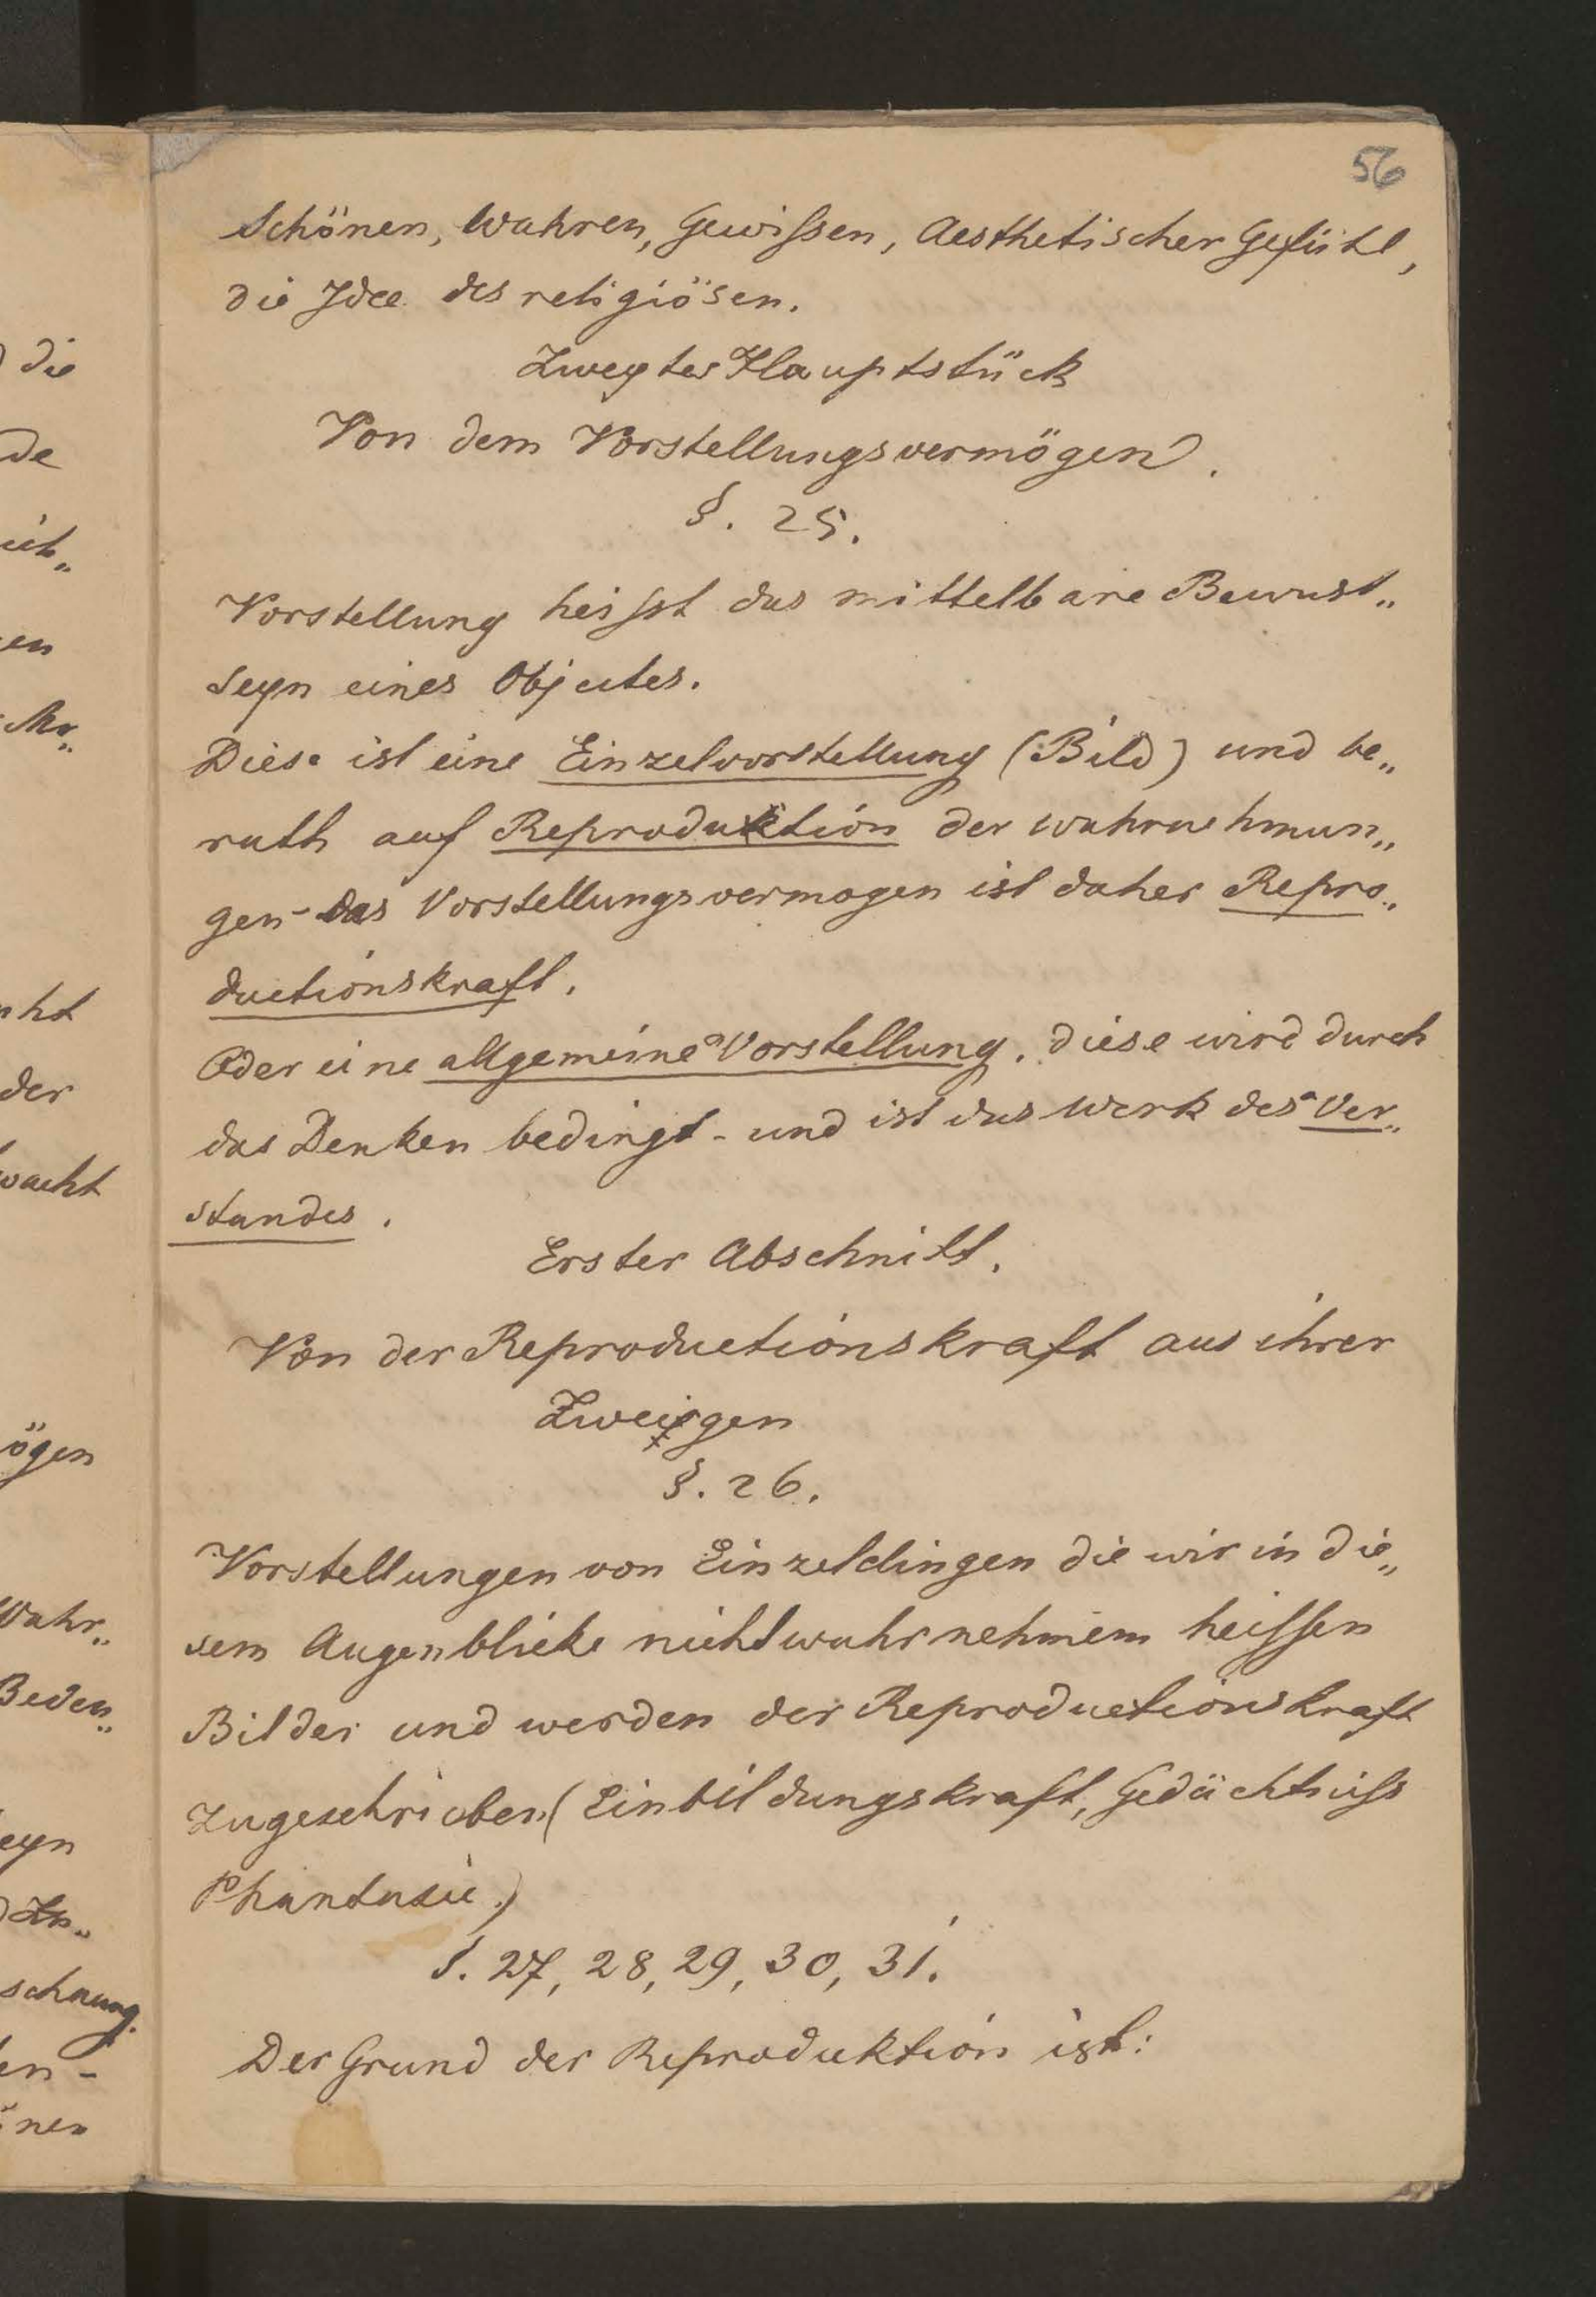 56
Schönen, Wahren, Gewissen, Aesthetischer Gefühl,
die Idee des religiösen.
Zweytes Hauptstück
Von dem Vorstellungsvermögen.
§. 25.
Vorstellung heisst das mittelbare Bewust„
seyn eines Objectes.
Diese ist eine Einzelvorstellung (Bild) und be„
ruth auf Reproduktion der wahrnehmun„
gen - das Vorstellungsvermogen ist daher Repro„
ductionskraft.
Oder eine allgemeine Vorstellung. diese wird durch
das Denken bedingt - und ist das Werk des Ver„
standes.
Erster Abschnitt.
Von der Reproductionskraft aus ihrer
Zweigen
§. 26.
Vorstellungen von Einzeldingen die wir in die„
sem Augenblicke nicht wahrnehmem heissen
Bilder und werden der Reproductionskraft
zugeschrieben (Einbildungskraft, Gedächtniss
Phantasie.)
§. 27, 28, 29, 30, 31.
Der Grund der Reproduktion ist:
die
de
en
cht
der
wacht
ögen
Wahr„
Beden„
eyn
schaung.
en -